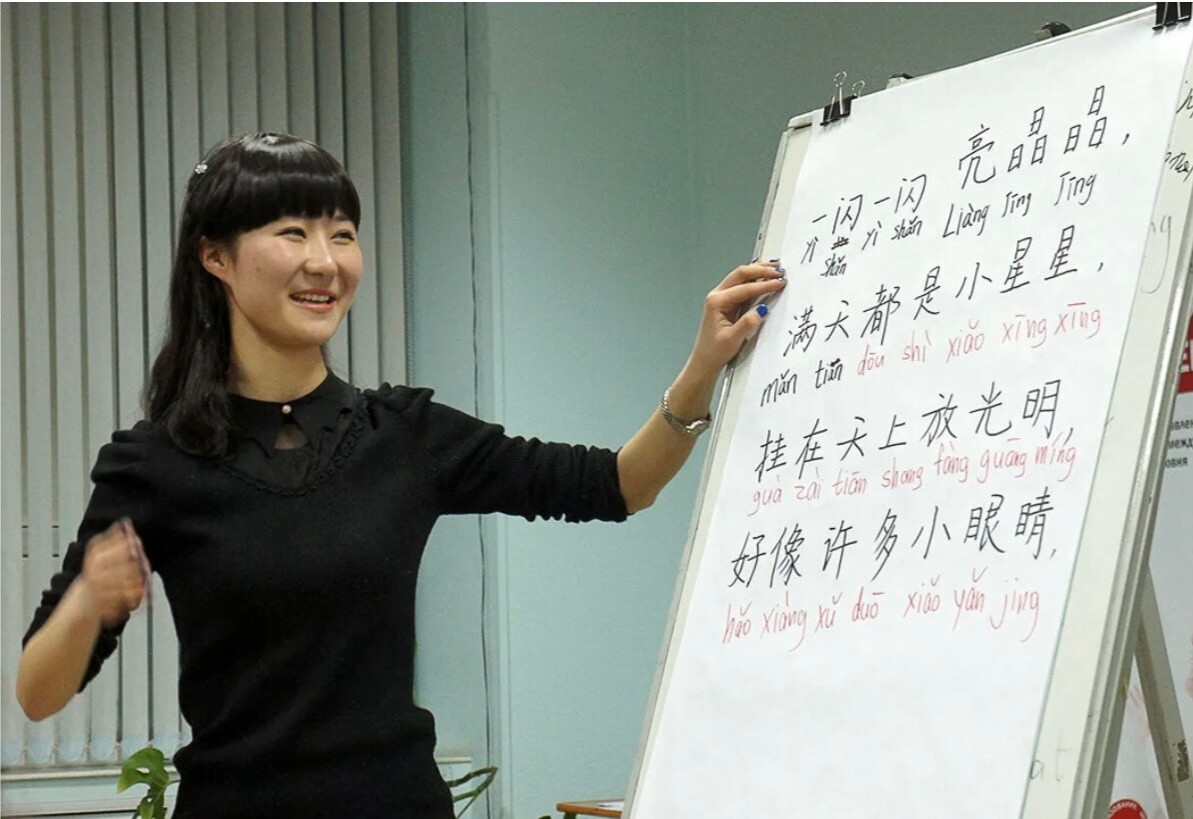 一闪一闪 亮晶晶,
yì shǎn yì shǎn Liàng Jīng Jīng
满天都是小星星,
mǎn tiān dōu shì xiǎo xīng xīng
挂在天上放光明,
guà zài tiān shang fàng guāng míng
好像许多小眼睛,
hǎo xiàng xǔ duō xiǎo yǎn jing